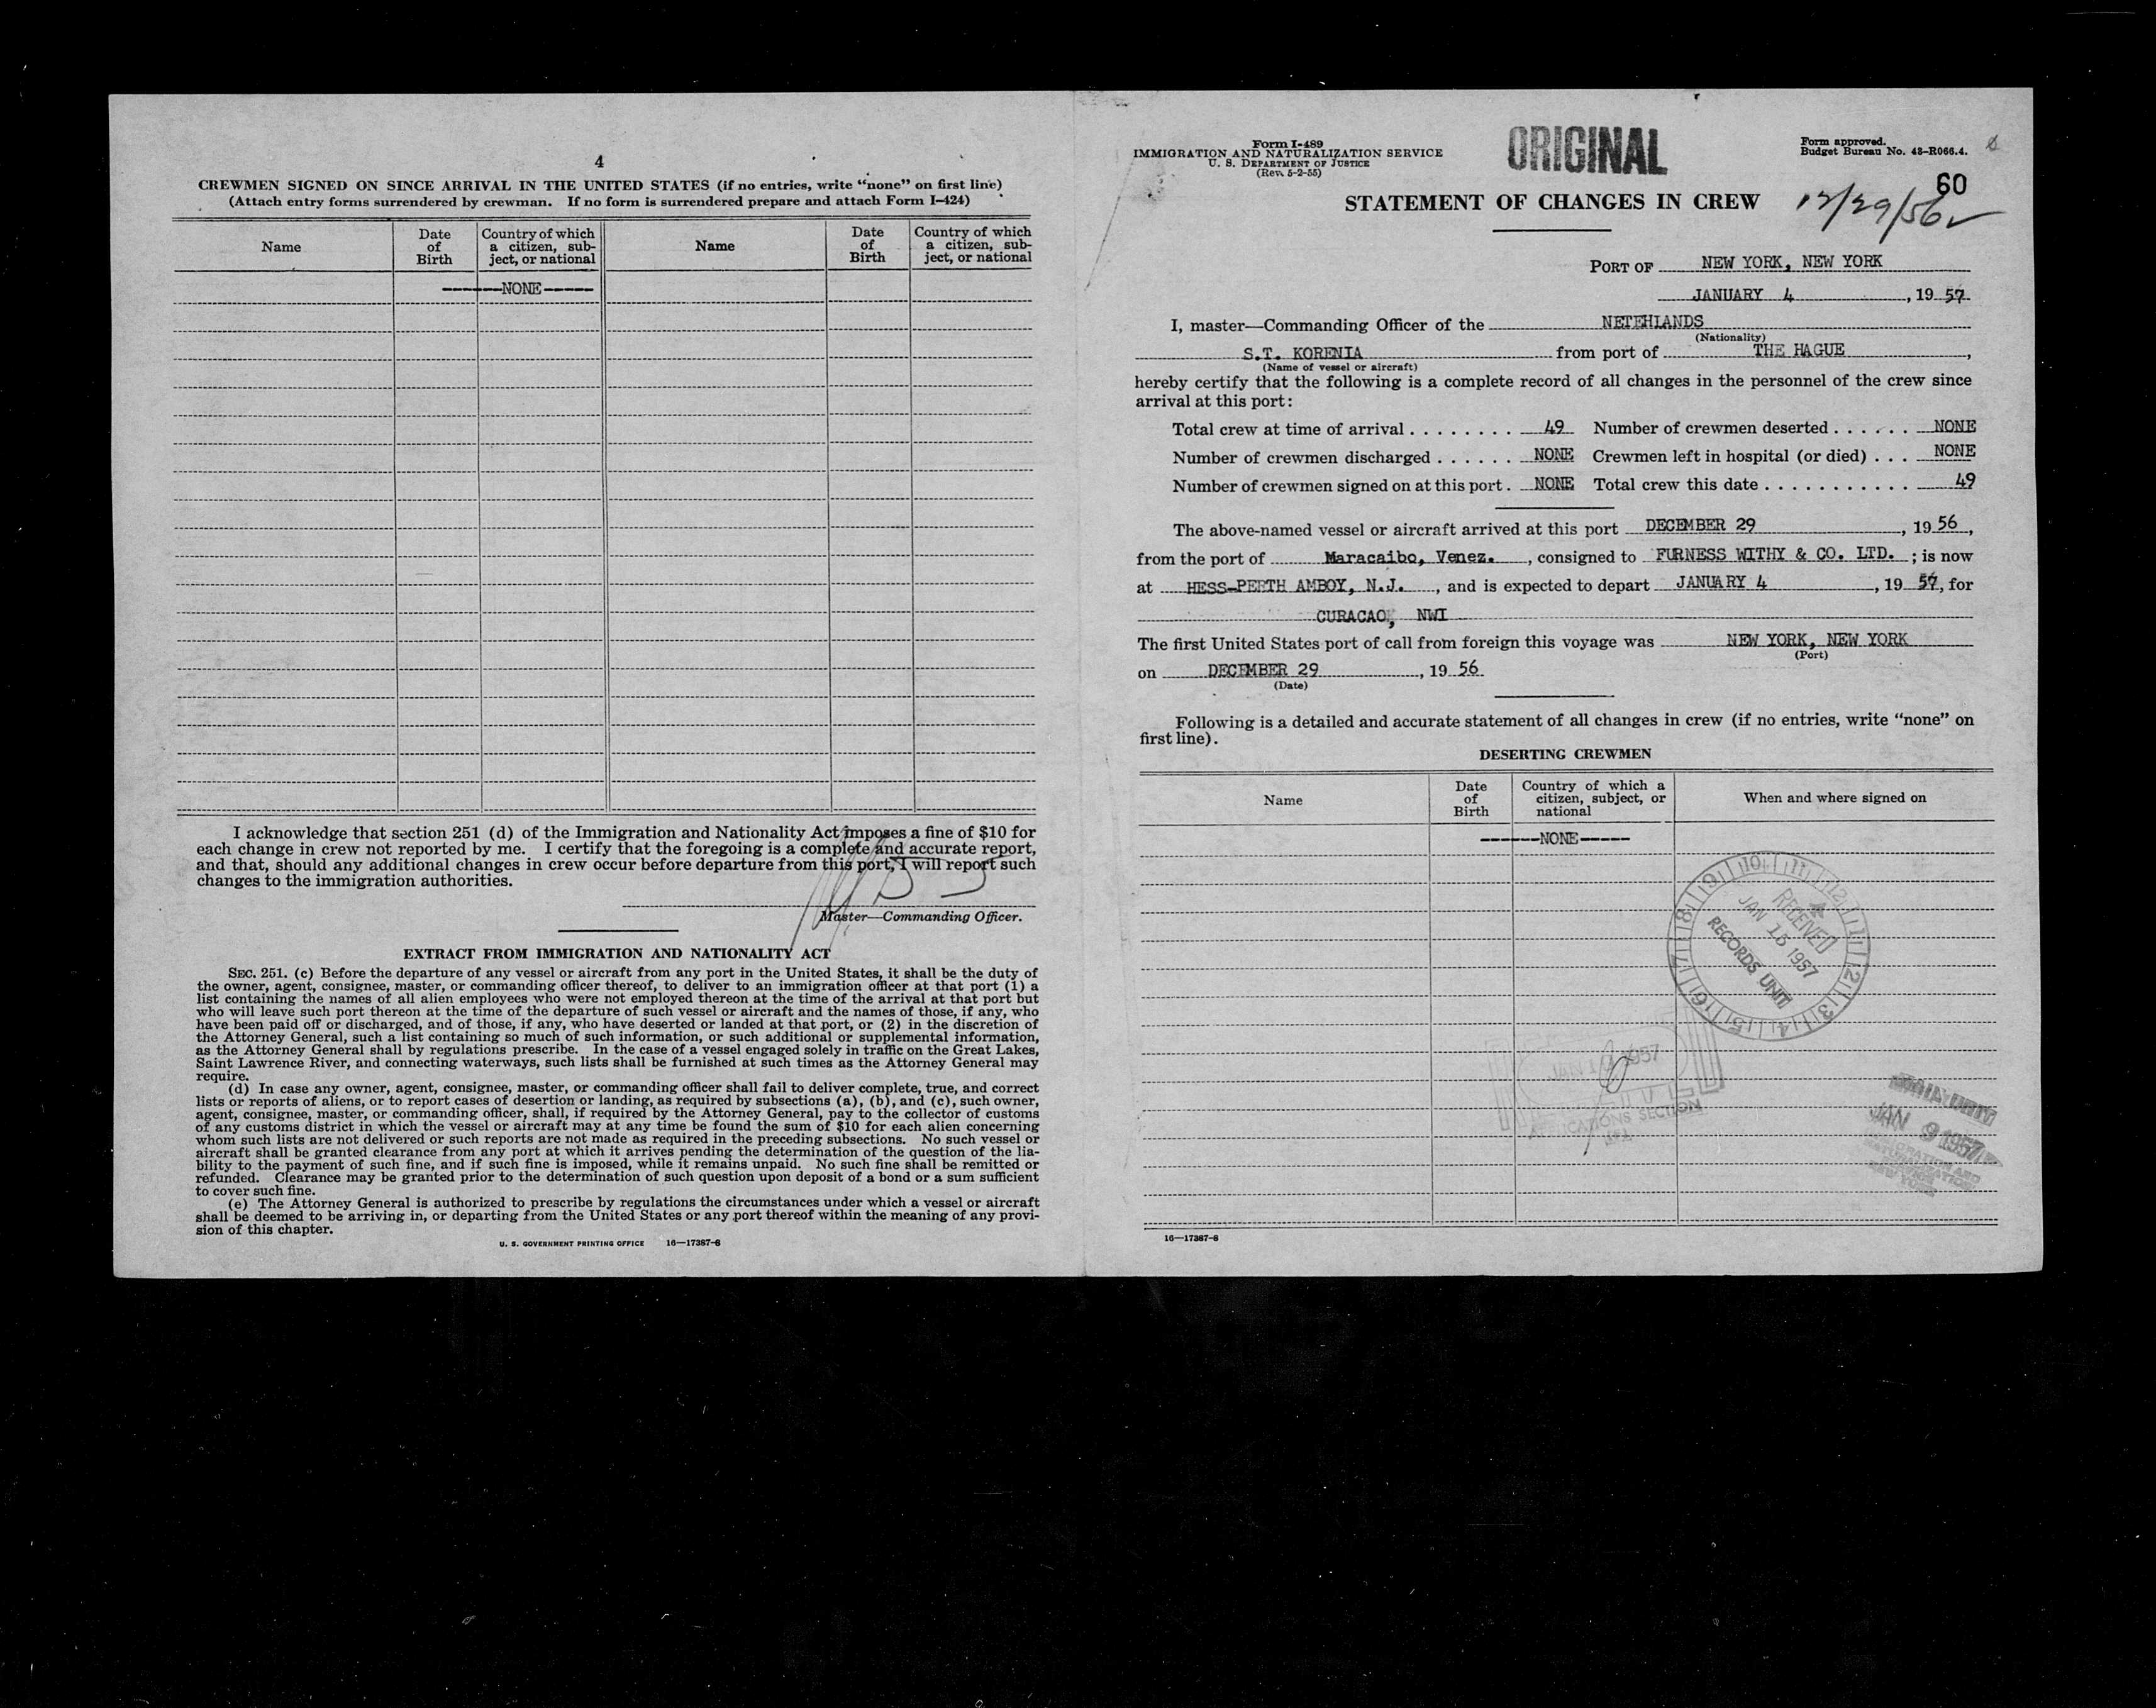 4
CREWMEN SIGNED ON SINCE ARRIVAL IN THE UNITED STATES (if no entries, write “none” on first line)
(Attach entry forms surrendered by crewman. If no form is surrendered prepare and attach Form I-424)
Name Date of Birth Country of which a citizen, sub-ject, or national Name Date of Birth Country of which a citizen, sub-ject, or national
------NONE-----
I acknowledge that section 251 (d) of the Immigration and Nationality Act imposes a fine of $10 for
each change in crew not reported by me. I certify that the foregoing is a complete and accurate report,
and that, should any additional changes in crew occur before departure from this port, I will report such
changes to the immigration authorities.
Master—Commanding Officer.
EXTRACT FROM IMMIGRATION AND NATIONALITY ACT
SEC. 251. (c) Before the departure of any vessel or aircraft from any port in the United States, it shall be the duty of
the owner, agent, consignee, master, or commanding officer thereof, to deliver to an immigration officer at that port (1) a
list containing the names of all alien employees who were not employed thereon at the time of the arrival at that port but
who will leave such port thereon at the time of the departure of such vessel or aircraft and the names of those, if any, who
have been paid off or discharged, and of those, if any, who have deserted or landed at that port, or (2) in the discretion of
the Attorney General, such a list containing so much of such information, or such additional or supplemental information,
as the Attorney General shall by regulations prescribe. In the case of a vessel engaged solely in traffic on the Great Lakes,
Saint Lawrence River, and connecting waterways, such lists shall be furnished at such times as the Attorney General may
require.
(d) In case any owner, agent, consignee, master, or commanding officer shall fail to deliver complete, true, and correct
lists or reports of aliens, or to report cases of desertion or landing, as required by subsections (a), (b), and (c), such owner,
agent, consignee, master, or commanding officer, shall, if required by the Attorney General, pay to the collector of customs
of any customs district in which the vessel or aircraft may at any time be found the sum of $10 for each alien concerning
whom such lists are not delivered or such reports are not made as required in the preceding subsections. No such vessel or
aircraft shall be granted clearance from any port at which it arrives pending the determination of the question of the lia-
bility to the payment of such fine, and if such fine is imposed, while it remains unpaid. No such fine shall be remitted or
refunded. Clearance may be granted prior to the determination of such question upon deposit of a bond or a sum sufficient
to cover such fine.
(e) The Attorney General is authorized to prescribe by regulations the circumstances under which a vessel or aircraft
shall be deemed to be arriving in, or departing from the United States or any port thereof within the meaning of any provi-
sion of this chapter.
U. S. GOVERNMENT PRINTING OFFICE 16—17387-8
Form I-489
IMMIGRATION AND NATURALIZATION SERVICE
U. S. DEPARTMENT OF JUSTICE
(Rev. 5-2-55)
ORIGINAL
Form approved.
Budget Bureau No. 43-R066.4.
60
STATEMENT OF CHANGES IN CREW
12/29/56
PORT OF NEW YORK, NEW YORK
JANUARY 4, 19 57
I, master—Commanding Officer of the NETEHLANDS
(Nationality)
S.T. KORENIA from port of THE HAGUE,
(Name of vessel or aircraft)
hereby certify that the following is a complete record of all changes in the personnel of the crew since
arrival at this port:
Total crew at time of arrival . . . . . . . . 49 Number of crewmen deserted . . . . . . NONE
Number of crewmen discharged . . . . . . NONE Crewmen left in hospital (or died) . . . NONE
Number of crewmen signed on at this port. NONE Total crew this date . . . . . . . . . . . 49
The above-named vessel or aircraft arrived at this port DECEMBER 29, 19 56,
from the port of Maracaibo, Venez., consigned to FURNESS WITHY & CO. LTD. ; is now
at HESS-PERTH AMBOY, N.J., and is expected to depart JANUARY 4, 19 57, for
CURACAO, NWI
The first United States port of call from foreign this voyage was NEW YORK, NEW YORK
(Port)
on DECEMBER 29, 19 56
(Date)
Following is a detailed and accurate statement of all changes in crew (if no entries, write “none” on
first line).
DESERTING CREWMEN
Name Date of Birth Country of which a citizen, subject, or national When and where signed on
------NONE-----
RECEIVED
JAN 15 1957
RECORDS UNIT
10 11 12 1 2 3 4 5 6 7 8 9
1957
SECTION
JAN 9 1957
16—17387-8